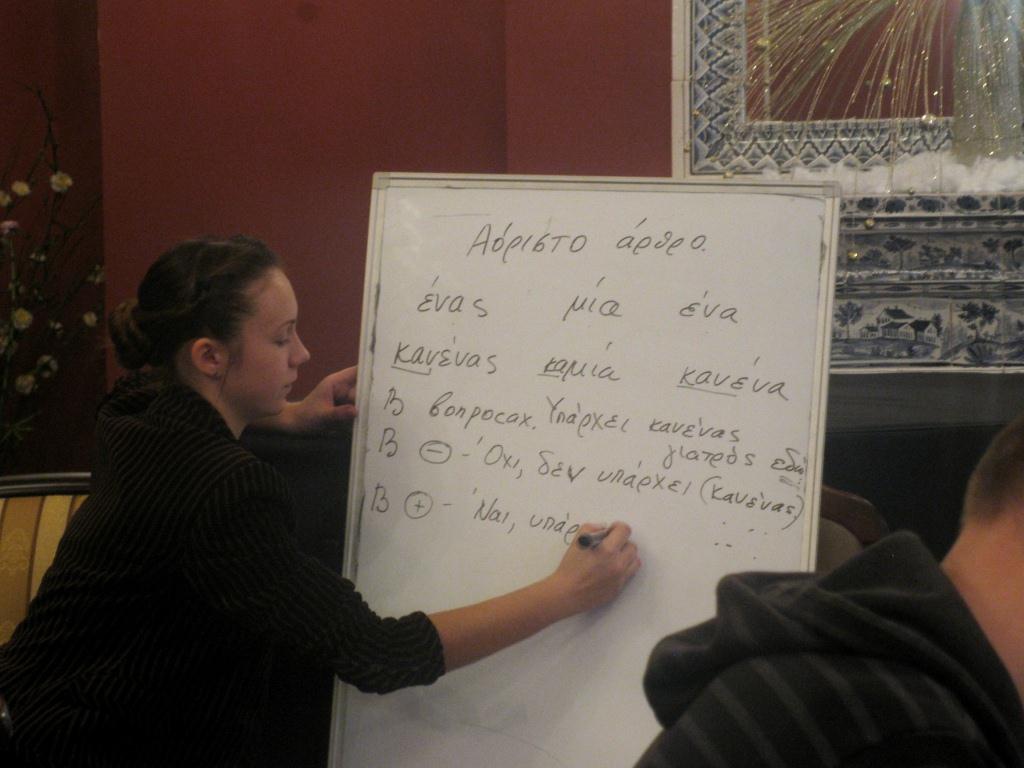 Αόριστο άρθρο.
ένας μία ένα
κανένας καμία κανένα
В вопросах. Υπάρχει κανένας
γιατρός εδώ
В ⊖ - Όχι, δεν υπάρχει (κανένας)
В ⊕ - Ναι, υπάρ